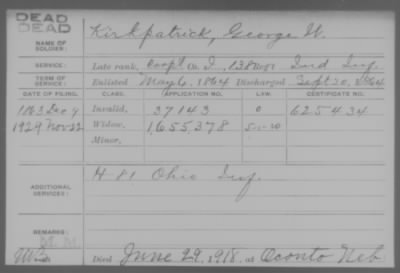 DEAD
DEAD
NAME OF SOLDIER: Kirkpatrick, George W.
SERVICE: Late rank, Corpl Co. I, 138 Regt Ind Inf.
TERM OF SERVICE: Enlisted May 6, 1864 Discharged Sept 30, 1864
DATE OF FILING. CLASS. APPLICATION NO. LAW. CERTIFICATE NO.
1863 Dec 9 Invalid, 37143 0 625434
1929 Nov 22 Widow, 1,655,378
Minor,
ADDITIONAL SERVICES: H 81 Ohio Inf.
REMARKS:
M. M.
Died June 29, 1918, at Oconto Neb